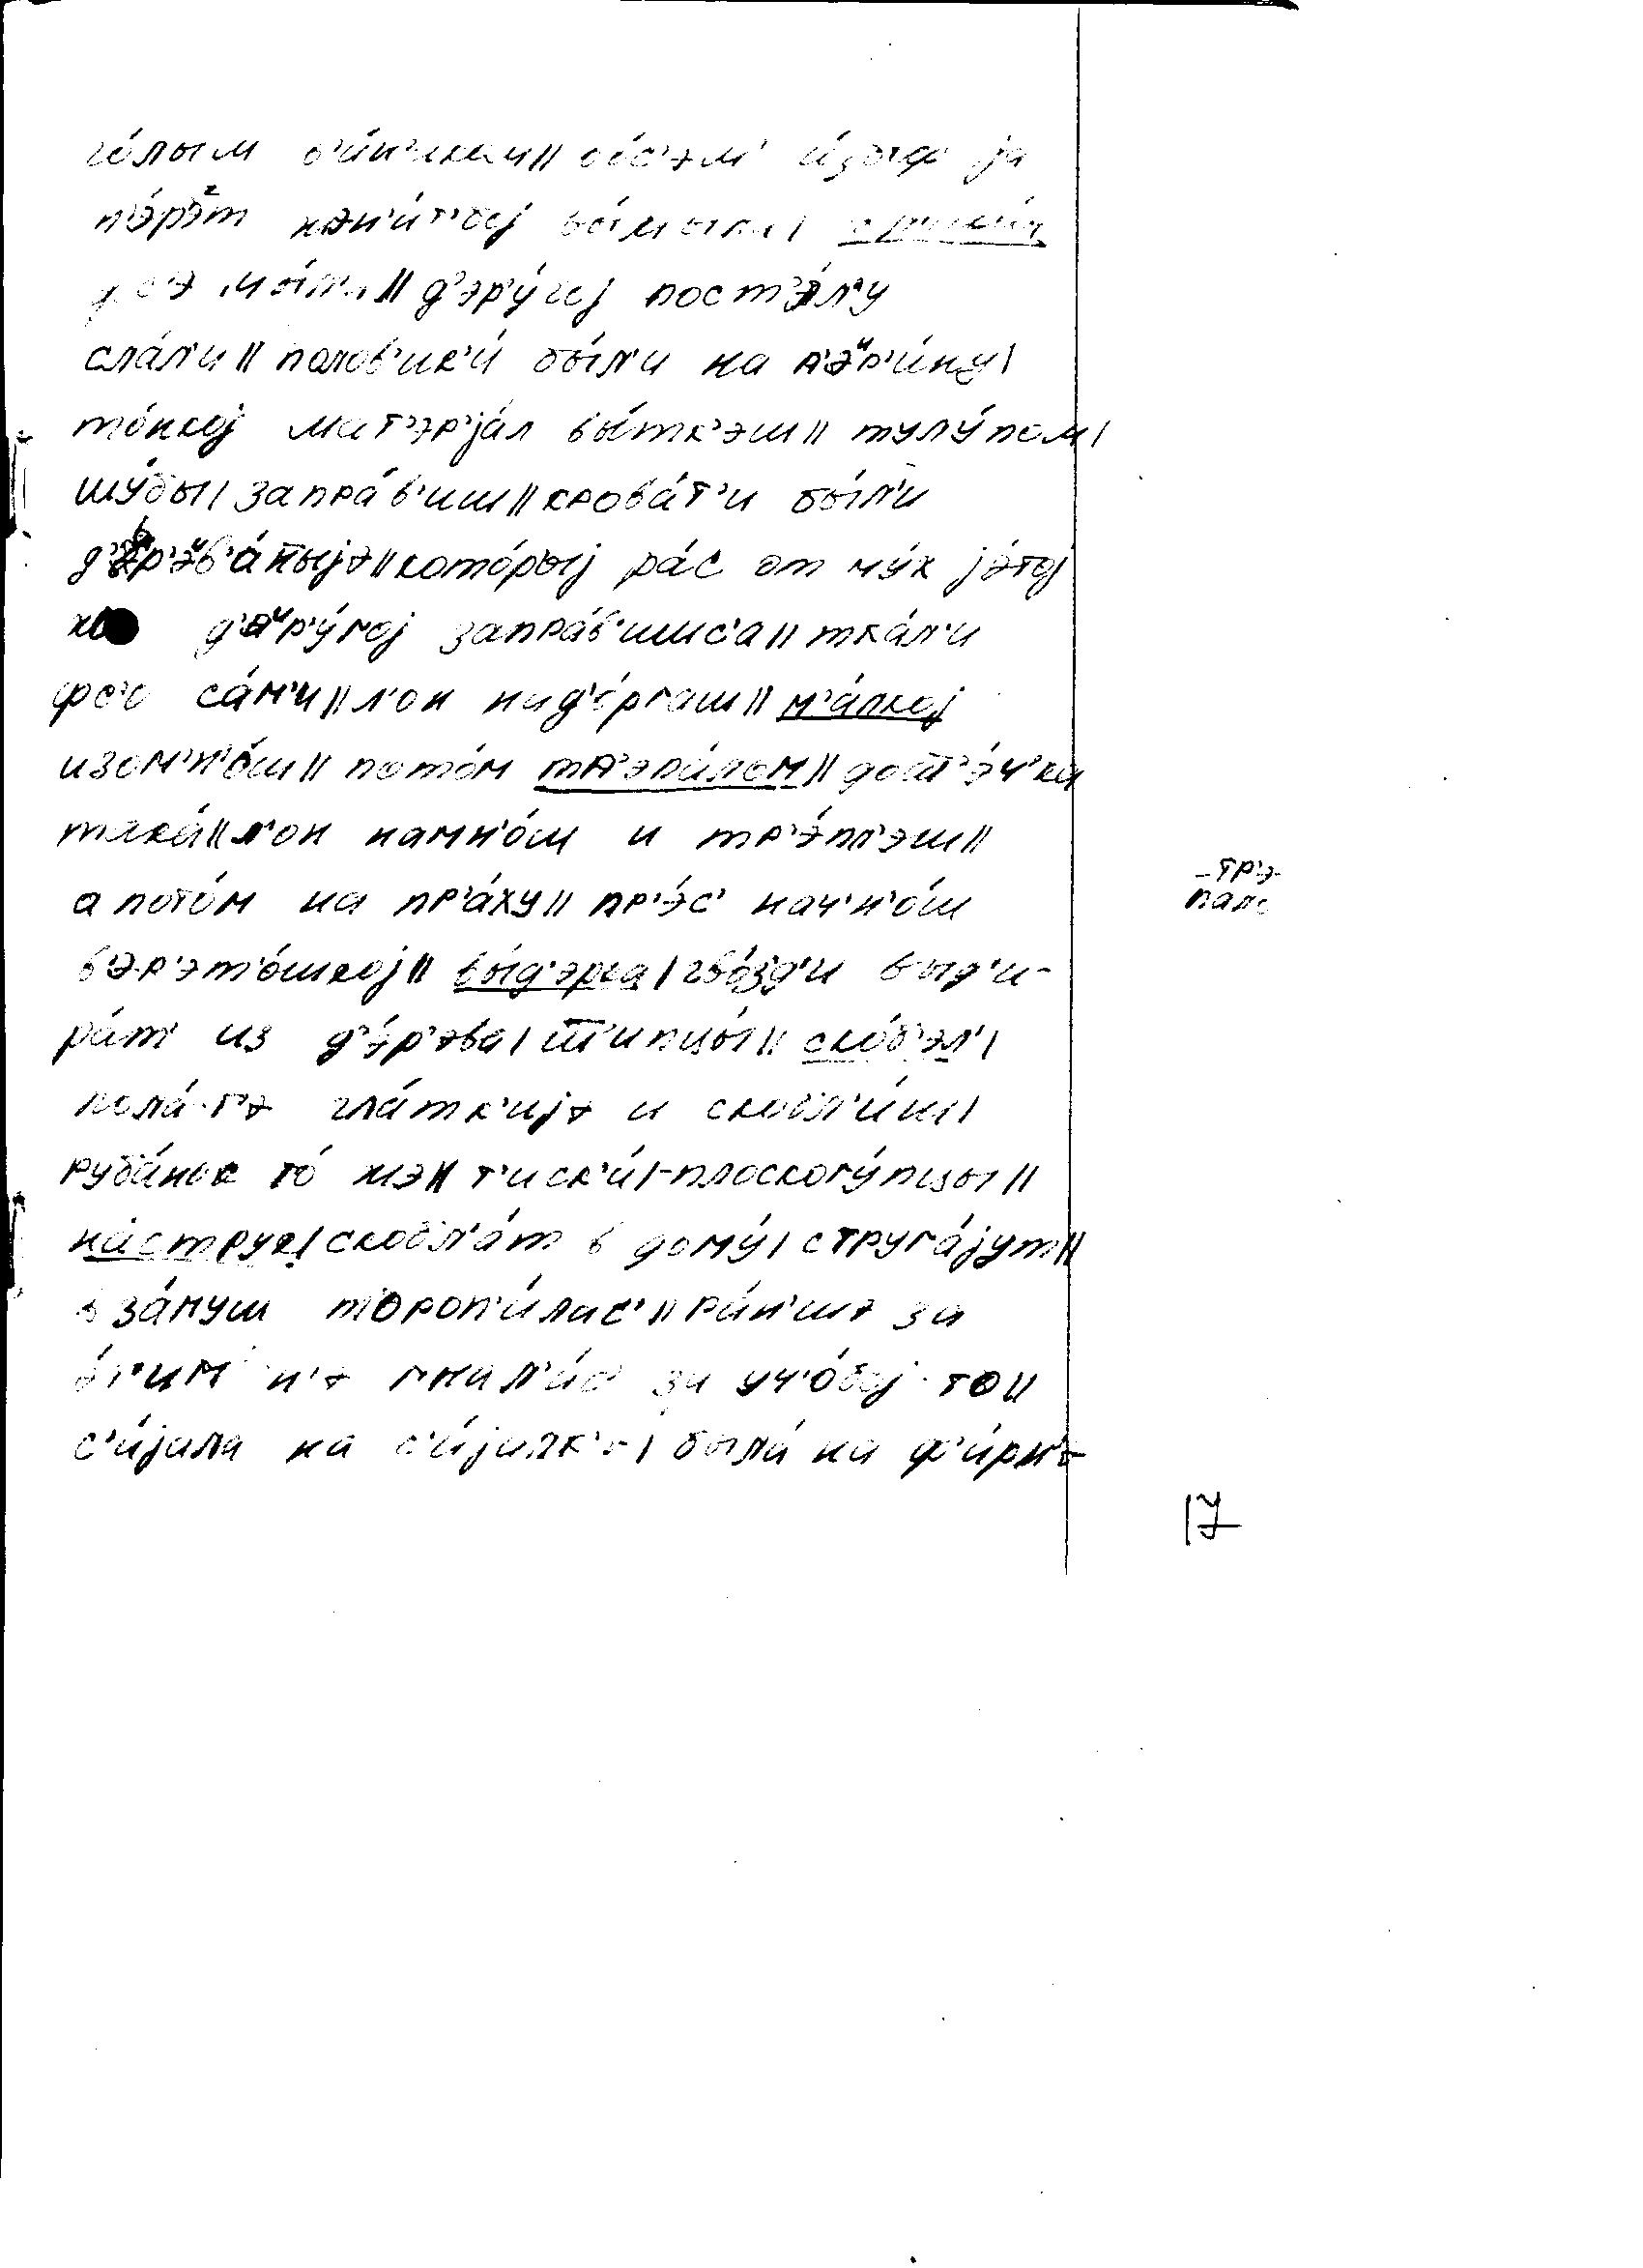 го́лым в'и́н'иком|| во́с'эм' и́збиф ја
п'э́р'эт
мы́л'и|| д'эр'у́гој пост'э́л'у
сла́л'и|| полов'ик'и́ бы́л'и на п'эᶦр'и́ну|
то́нкој мат'эр'ја́л вы́тк'эш|| тулу́пом|
шу́бы| запра́в'иш|| крова́т'и бы́л'и
д'эр'эᶦв'а́ныјэ|| кото́рыј ра́с от му́х је́тој
д'эᶦр'у́гој запра́в'ишс'а|| тка́л'и
фс'о са́м'и|| л'он над'о́ргаш|| м'а́лкој
изом'н'о́ш|| пото́м тр'эпа́лом|| дошт'э́ч'ка
така́|| л'он намн'о́ш и тр'э́пл'эш||
а пото́м на пр'а́ху|| пр'э́с' нач'н'о́ш
в'эр'эт'о́шкој|| вы́д'эрга| гво́зд'и выд'и-
ра́т' из д'э́р'эва| ш'ипцы́|| ско́б'эл'|
пола́т'э гла́тк'ијэ и скобл'и́ш|
руба́нок то́ жэ|| т'иск'и́|-плоскогу́пцы||
на́струг| скобл'а́т в дому́| струга́јут||
в за́муш тороп'и́лас'|| ра́н'шэ за
э́т'им н'э гнал'и́с' за уч'о́бој-то||
с'и́јала на с'и́јалк'э| была́ на ф'и́рм'э
-тр'э-
пало
17